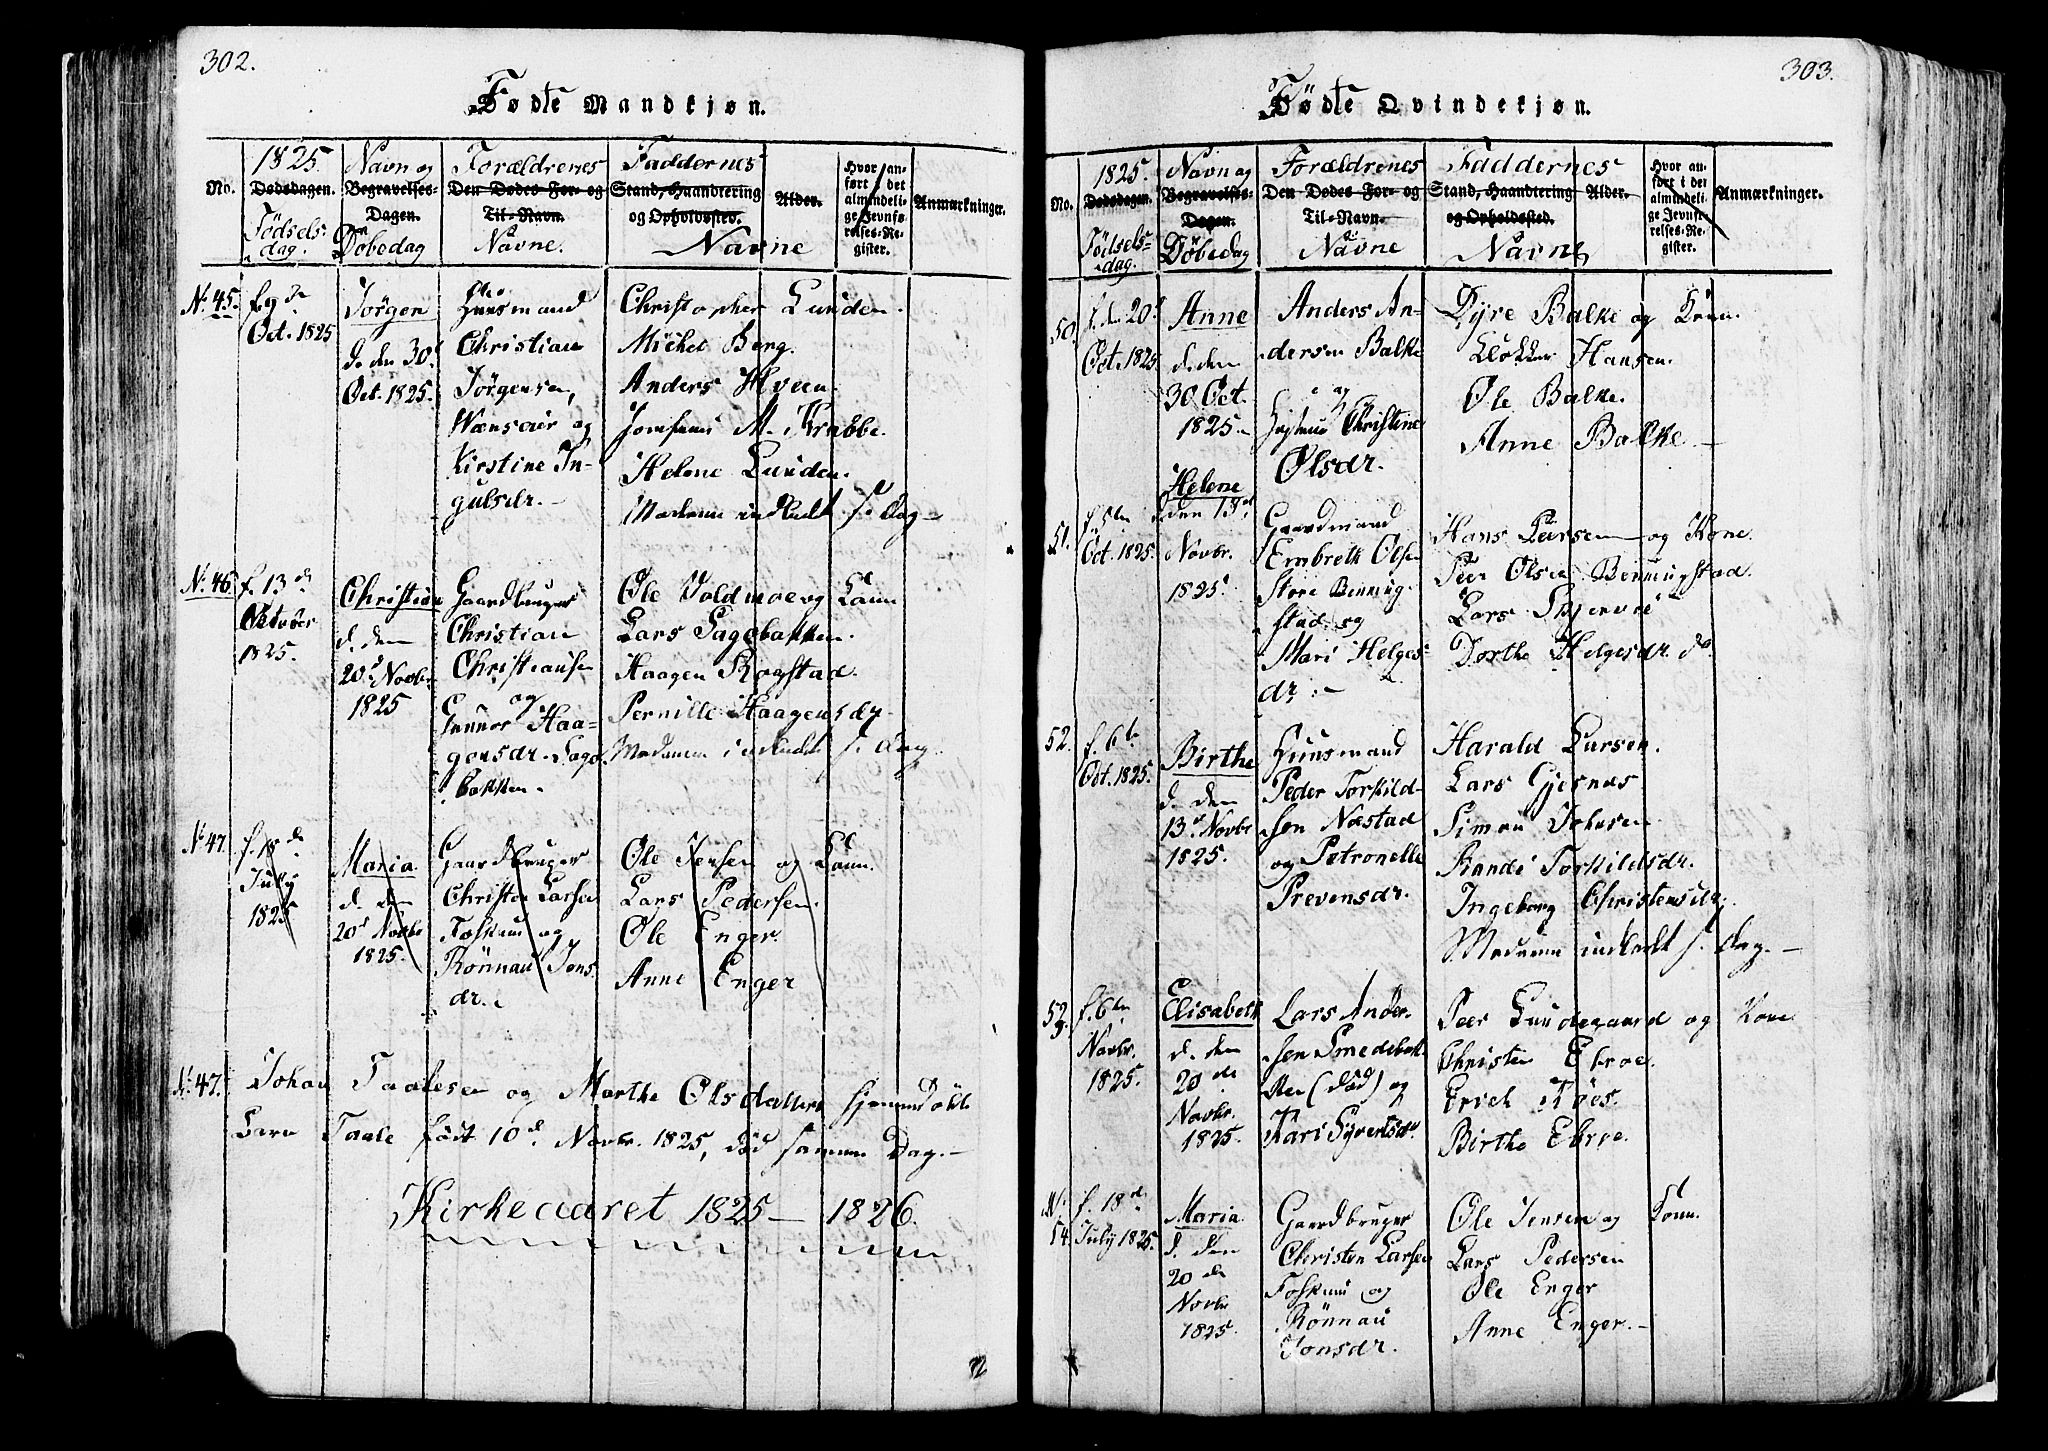 302.
Fødte Mandkjøn.
No.
1825.
Dødsdagen.
Fødsels-
dag.
Navn og
Begravelses-
Dagen.
Døbedag
Forældrenes
Den Dødes For- og
Til-Navn.
Navne.
Faddernes
Stand, Haandtering
og Opholdssted.
Navne
Alder.
Hvor an-
ført i det
almindeli-
ge Jevnfø-
relses-Re-
gister.
Anmærkninger.
No. 45.
f. 9de
Oct. 1825
Jörgen
d. den 30d
Oct. 1825.
Huusmand
Christian
Jörgensen,
og
Kirstine In-
gulsdr.
Christopher Lunden.
Michel Berg.
Anders Hveen.
Jomfrue M. Krabbe.
Helene Lunden.
Moderen indledt s. Dag
No. 46.
f. 13d
October
1825.
Christian
d. den
20d Novbr
1825
Gaardbruger
Christian
Christiansen
og
Gunnor Haa-
gensdr. Sagv.
bakken.
Ole Voldmoe og Kone
Lars Sagbakken.
Haagen Rogstad.
Pernille Haagensdr.
Moderen indledt s. Dag.
No. 47.
f. 18d
July
1825
Maria
d. den
20d Novbr
1825.
Gaardbruger
Christen Larsen
Foskum og
Rönnau Jons
dr.
Ole Jensen og Kone.
Lars Pedersen.
Ole Enger.
Anne Enger
No. 47.
Johan Taalesen og Marthe Olsdatters hjemmedöbte
Barn Taale født 10d Novbr. 1825, död samme Dag.
Kirkeaaret 1825 — 1826.
303.
Fødte Qvindekjøn.
No.
1825.
Dødsdagen.
Fødsels-
dag.
Navn og
Begravelses-
Dagen.
Döbedag
Forældrenes
Den Dødes For- og
Til-Navn.
Navne
Faddernes
Stand, Haandtering
og Opholdssted.
Navne
Alder.
Hvor an-
ført i det
almindeli-
ge Jevnfø-
relses-Re-
gister.
Anmærkninger.
50.
f. d. 20d
Oct. 1825.
Anne
d. den
30 Oct.
1825.
Anders An-
dersen Balke
og
Christine
Olsdr.
Dyre Balke og Kone.
Klokker Hansen.
Ole Balke.
Anne Balke.
51.
f. 5te
Oct. 1825.
Helene
den 13d
Novbr.
1825.
Gaardmand
Embreth Olsen
Store Benning-
stad og
Mari Helges-
dr.
Hans Larsen og Kone.
Peer Olsen Benningstad.
Lars
Dorthe Helgesdr. do.
52.
f. 6te
Oct. 1825.
Birthe
d. den
13d Novbr
1825.
Huusmand
Peder Torkild-
sen Næstad
og Petronelle
Prevensdr.
Harald Larsen.
Lars Gjernæs
Simon Johnsen.
Randi Torkildsdr.
Ingeborg Christensdr.
Moderen indledt s. Dag.
53.
f. 6te
Novbr.
1825.
Elisabeth
d. den
20de
Novbr.
1825.
Lars Ander-
sen Smedebak-
ken (död) og
Kari Syvertsdr.
Peer Gundegaard og Kone
Christen Ebroe.
Erich Röes.
Birthe Ebroe.
No.
54.
f. 18d
July 1825.
Maria
d. den
20de
Novbr
1825.
Gaardbruger
Christen Larsen
Foskum og
Rönnau
Jonsdr.
Ole Jensen og Kone.
Lars Pedersen
Ole Enger
Anne Enger.